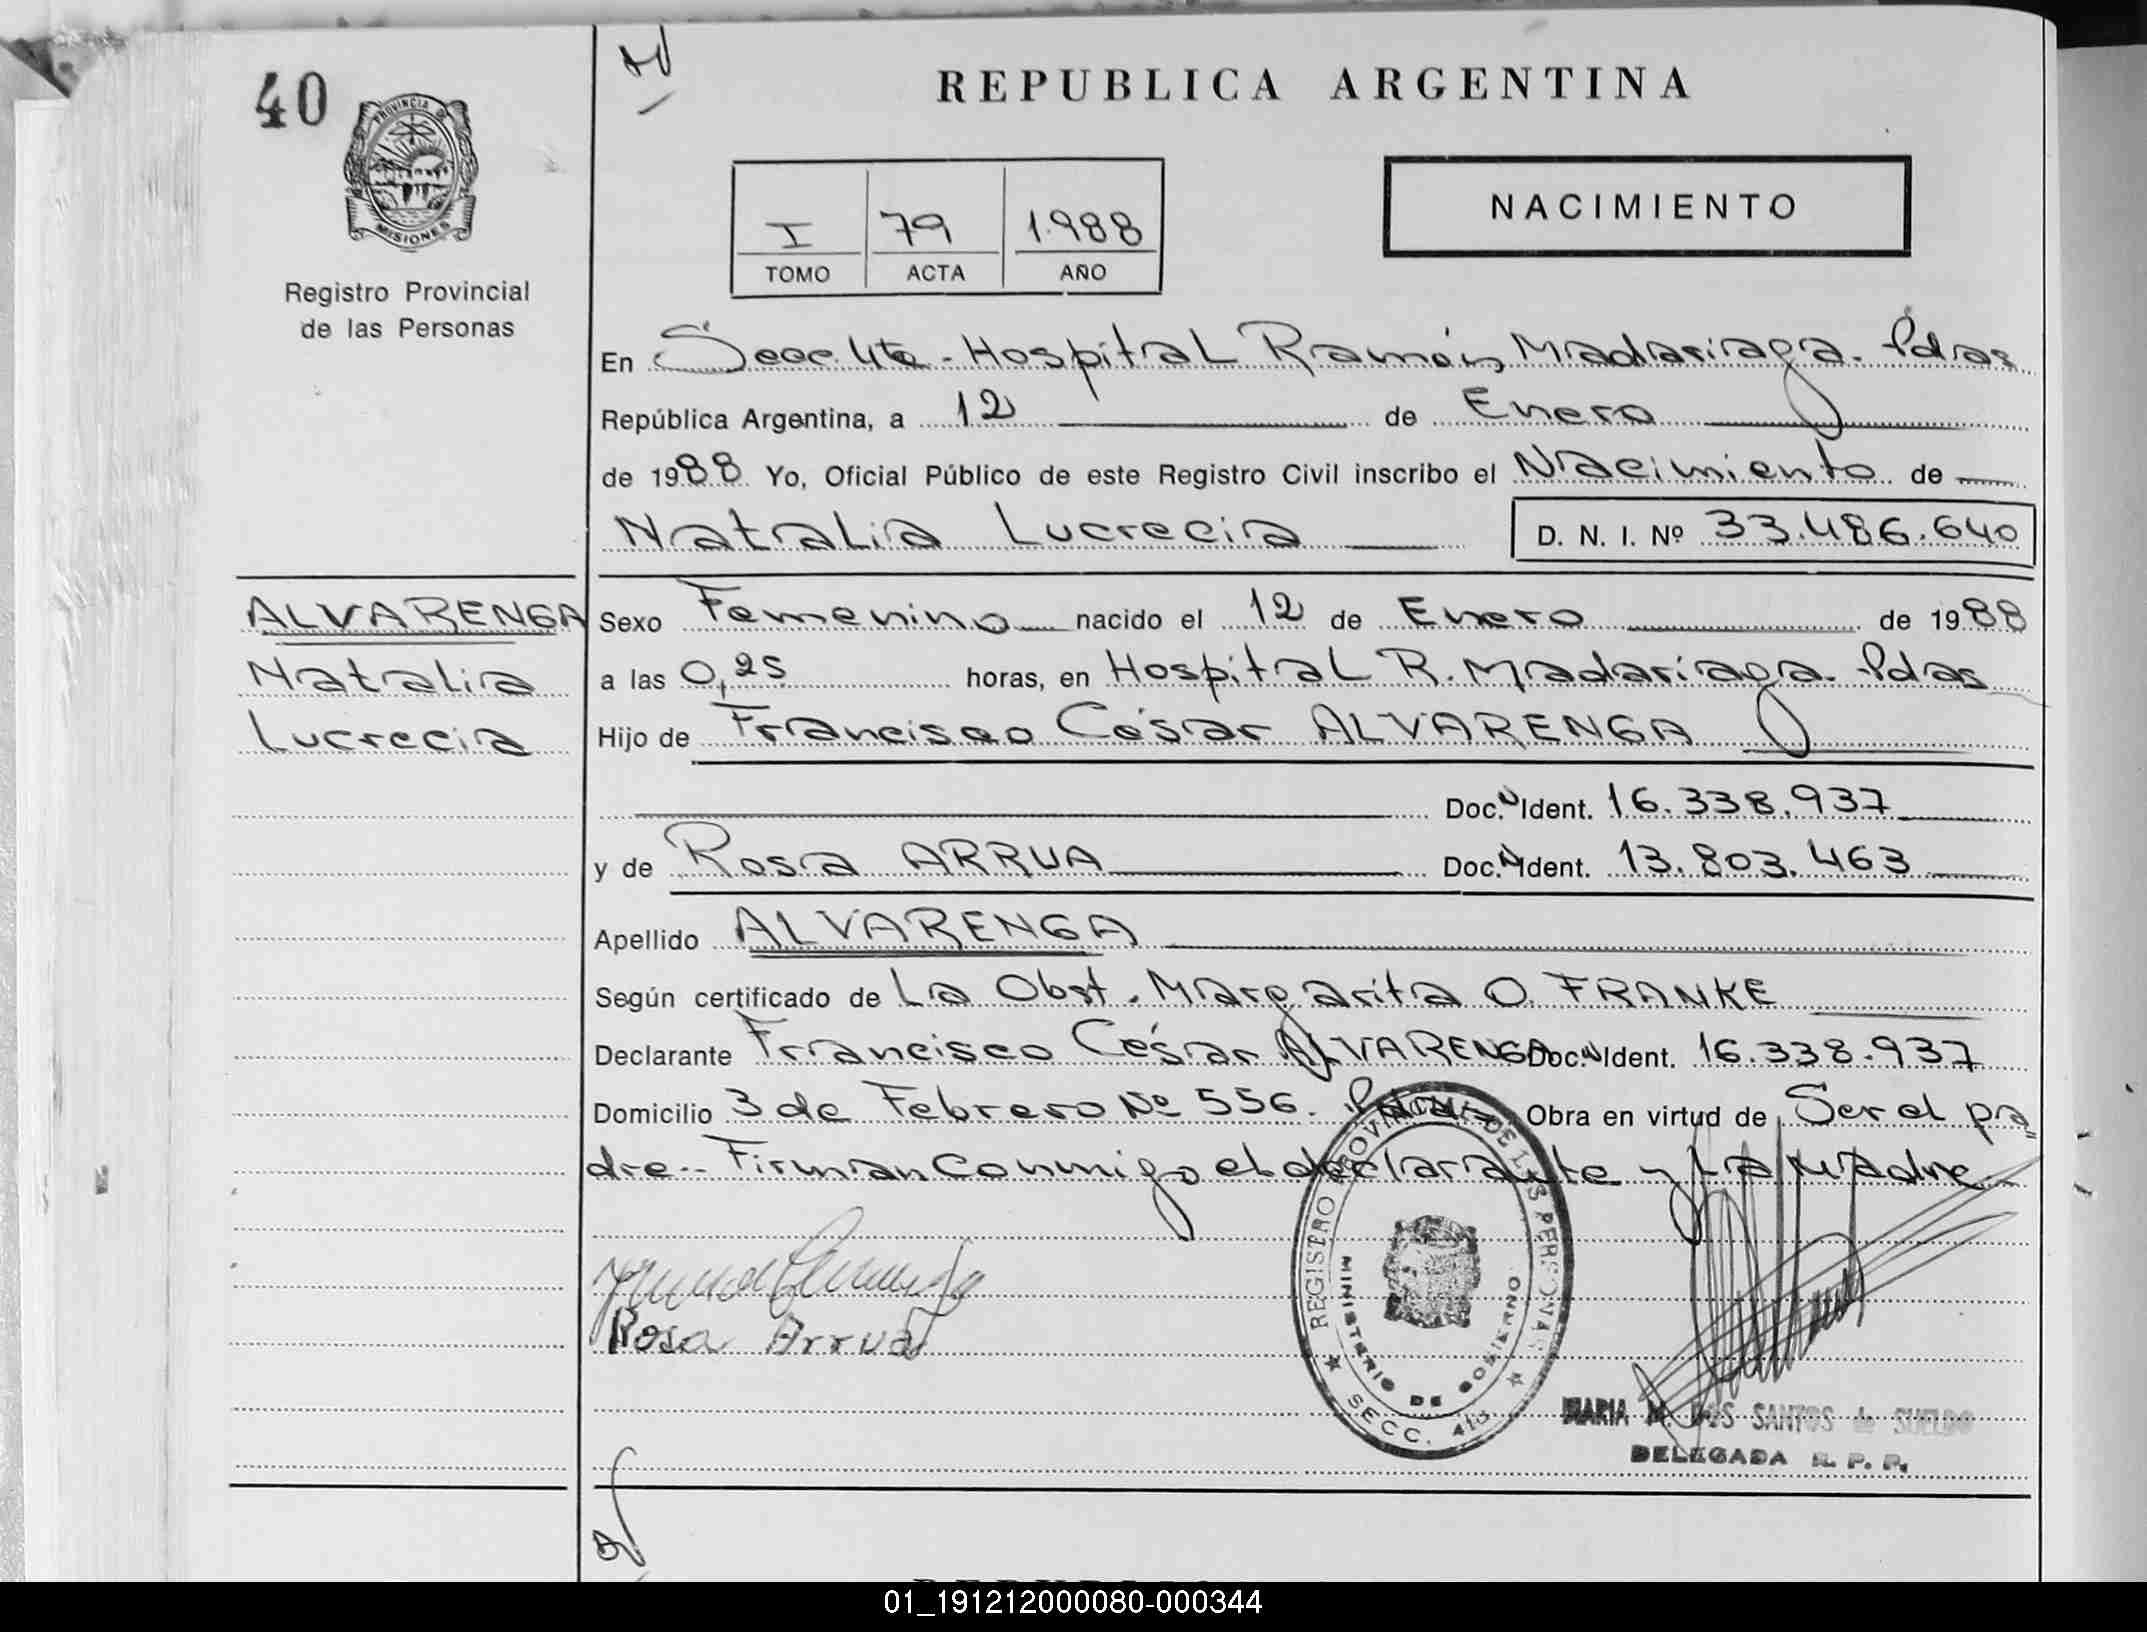 40
PROVINCIA DE
MISIONES
Registro Provincial
de las Personas
REPUBLICA ARGENTINA
I 79 1.988
TOMO ACTA AÑO
NACIMIENTO
En Secc. 4ta - Hospital Ramón Madariaga - Pdas
República Argentina, a 12 de Enero
de 1988 Yo, Oficial Público de este Registro Civil inscribo el Nacimiento de
Natalia Lucrecia D. N. I. Nº 33.486.640
ALVARENGA
Natalia
Lucrecia
Sexo Femenino nacido el 12 de Enero de 1988
a las 0,25 horas, en Hospital R. Madariaga - Pdas
Hijo de Francisco César ALVARENGA
Doc. Ident. 16.338.937
y de Rosa ARRUA Doc. Ident. 13.803.463
Apellido ALVARENGA
Según certificado de La Obst. Margarita O. FRANKE
Declarante Francisco César ALVARENGA Doc. Ident. 16.338.937
Domicilio 3 de Febrero Nº 556. Pdas - Obra en virtud de Ser el pa
dre.- Firman Conmigo el declarante y La Madre -
Rosa Arrua
REGISTRO PROVINCIAL DE LAS PERSONAS
MINISTERIO DE GOBIERNO
SECC. 4ta
MARIA M. DOS SANTOS de SUELDO
DELEGADA R. P. P.
01_191212000080-000344